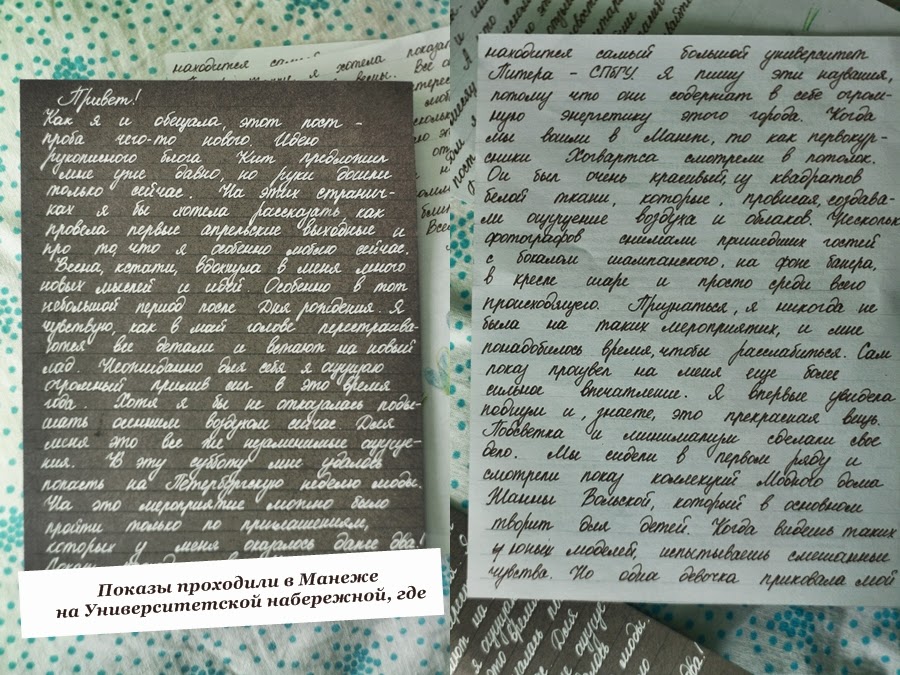 Привет!
Как я и обещала, этот пост -
проба чего-то нового. Идею
рукописного блога Кит предложил
мне уже давно, но руки дошли
только сейчас. На этих странич-
ках я бы хотела рассказать, как
провела первые апрельские выходные и
про то, что я особенно люблю сейчас.
Весна, кстати, вдохнула в меня много
новых мыслей и идей. Особенно в тот
небольшой период после Дня рождения. Я
чувствую, как в моей голове перестраива-
ются все детали и встают на новый
лад. Неожиданно для себя я ощущаю
огромный прилив сил в это время
года. Хотя я бы не отказалась поды-
шать осенним воздухом сейчас. Для
меня это все же незаменимые ощуще-
ния. В эту субботу мне удалось
попасть на Петербургскую неделю моды.
На это мероприятие можно было
пройти только по приглашениям,
которых у меня оказалось даже два!
Показы проходили в Манеже
на Университетской набережной, где
находится самый большой университет
Питера - СПбГУ. Я пишу эти названия,
потому что они содержат в себе огром-
ную энергетику этого города. Когда
мы вошли в Манеж, то как первокур-
сники Хогвартса смотрели в потолок.
Он был очень красивый, из квадратов
белой ткани, которые, провисая, создава-
ли ощущение воздуха и облаков. Несколько
фотографов снимали пришедших гостей
с бокалом шампанского, на фоне банера,
в кресле шаре и просто среди всего
происходящего. Признаться, я никогда не
была на таких мероприятиях, и мне
понадобилось время, чтобы расслабиться. Сам
показ произвел на меня еще более
сильное впечатление. Я впервые увидела
подиум и, знаете, это прекрасная вещь.
Подсветка и минимализм сделали свое
дело. Мы сидели в первом ряду и
смотрели показ коллекций Модного дома
Жанны Вольской, который в основном
творит для детей. Когда видишь таких
юных моделей, испытываешь смешанные
чувства. Но одна девочка приковала мой